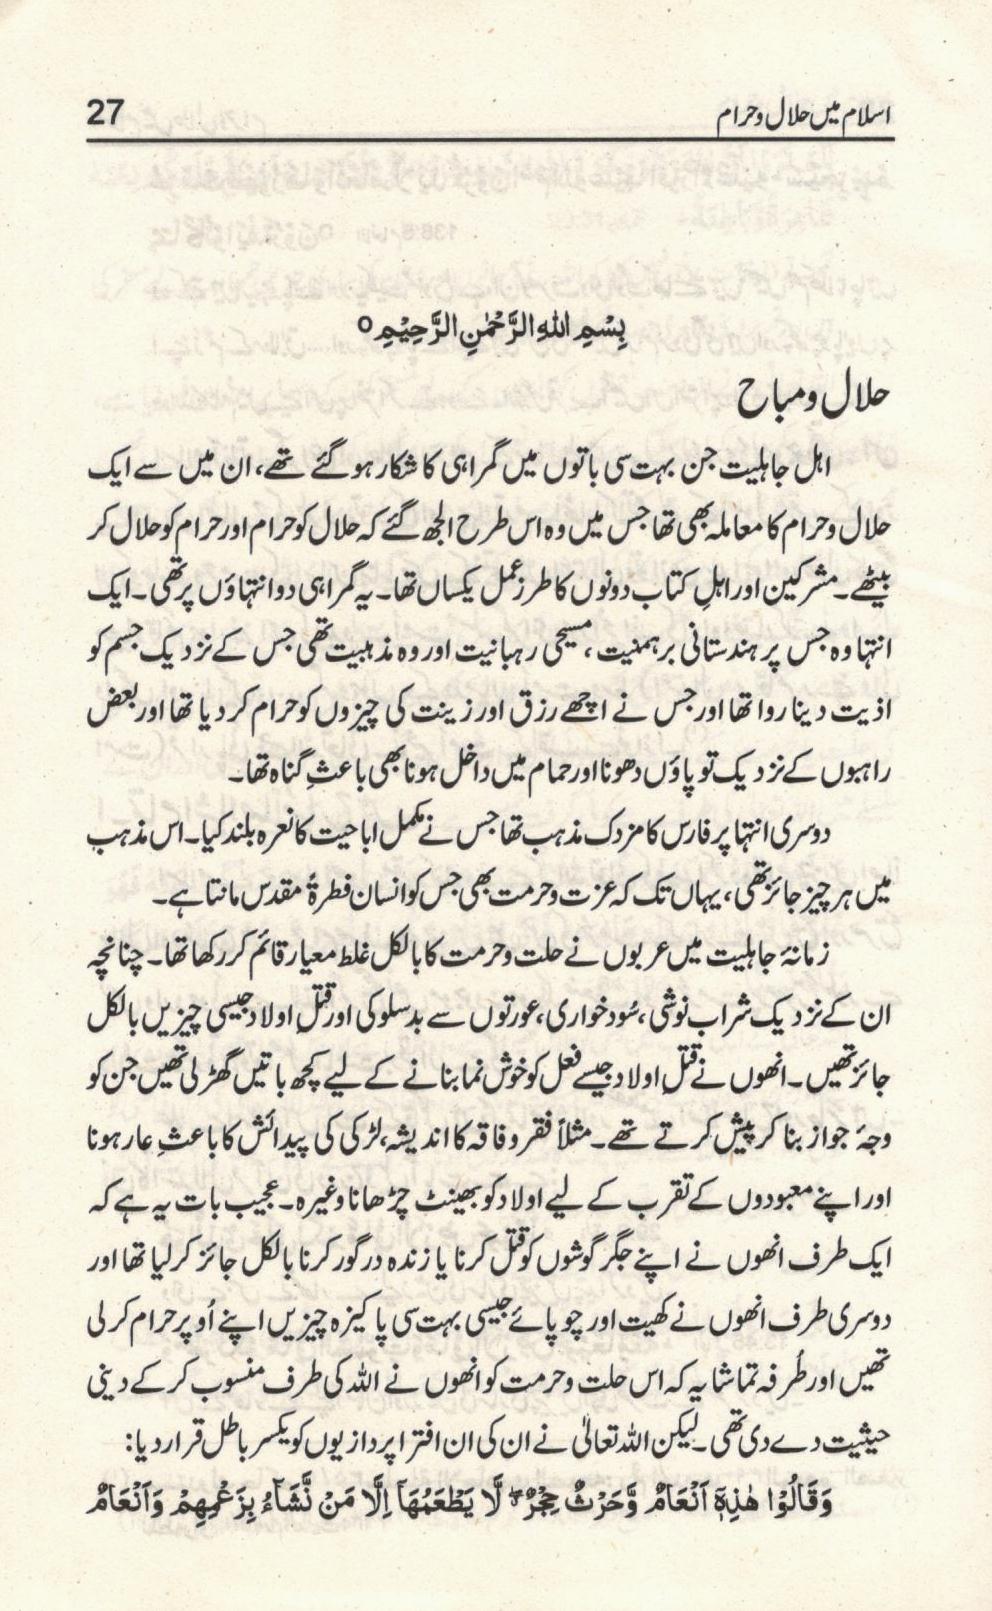 اسلام میں حلال و حرام 27
بِسْمِ اللهِ الرَّحْمٰنِ الرَّحِیْمِ ○
حلال و مباح
اہل جاہلیت جن بہت سی باتوں میں گمراہی کا شکار ہو گئے تھے، ان میں سے ایک
حلال و حرام کا معاملہ بھی تھا جس میں وہ اس طرح الجھ گئے کہ حلال کو حرام اور حرام کو حلال کر
بیٹھے۔ مشرکین اور اہلِ کتاب دونوں کا طرزِ عمل یکساں تھا۔ یہ گمراہی دو انتہاؤں پر تھی۔ ایک
انتہا وہ جس پر ہندستانی برہمنیت، مسیحی رہبانیت اور وہ مذہبیت تھی جس کے نزدیک جسم کو
اذیت دینا روا تھا اور جس نے اچھے رزق اور زینت کی چیزوں کو حرام کر دیا تھا اور بعض
راہبوں کے نزدیک تو پاؤں دھونا اور حمام میں داخل ہونا بھی باعثِ گناہ تھا۔
دوسری انتہا پر فارس کا مزدک مذہب تھا جس نے مکمل اباحیت کا نعرہ بلند کیا۔ اس مذہب
میں ہر چیز جائز تھی، یہاں تک کہ عزت و حرمت بھی جس کو انسان فطرۃً مقدس مانتا ہے۔
زمانۂ جاہلیت میں عربوں نے حلت و حرمت کا بالکل غلط معیار قائم کر رکھا تھا۔ چنانچہ
ان کے نزدیک شراب نوشی، سُود خواری، عورتوں سے بدسلوکی اور قتلِ اولاد جیسی چیزیں بالکل
جائز تھیں۔ انھوں نے قتلِ اولاد جیسے فعل کو خوش نما بنانے کے لیے کچھ باتیں گھڑ لی تھیں جن کو
وجۂ جواز بنا کر پیش کرتے تھے۔ مثلاً فقر و فاقہ کا اندیشہ، لڑکی کی پیدائش کا باعثِ عار ہونا
اور اپنے معبودوں کے تقرب کے لیے اولاد کو بھینٹ چڑھانا وغیرہ۔ عجیب بات یہ ہے کہ
ایک طرف انھوں نے اپنے جگر گوشوں کو قتل کرنا یا زندہ درگور کرنا بالکل جائز کر لیا تھا اور
دوسری طرف انھوں نے کھیت اور چوپائے جیسی بہت سی پاکیزہ چیزیں اپنے اُوپر حرام کر لی
تھیں اور طُرفہ تماشا یہ کہ اس حلت و حرمت کو انھوں نے اللہ کی طرف منسوب کر کے دینی
حیثیت دے دی تھی۔ لیکن اللہ تعالیٰ نے ان کی ان افترا پردازیوں کو یکسر باطل قرار دیا:
وَقَالُوْا هٰذِهٖٓ اَنْعَامٌ وَّحَرْثٌ حِجْرٌ ۖ لَّا یَطْعَمُهَآ اِلَّا مَنْ نَّشَآءُ بِزَعْمِهِمْ وَاَنْعَامٌ